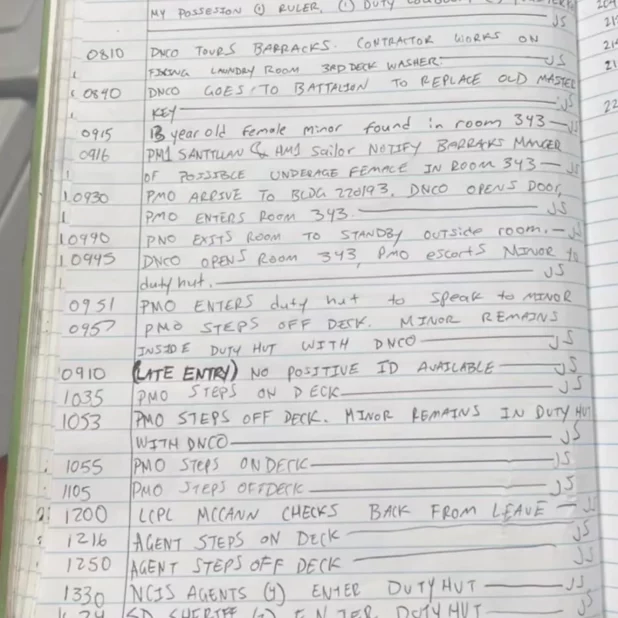 MY POSSESION (1) RULER, (1) DUTY
JS
0810 DNCO TOURS BARRACKS. CONTRACTOR WORKS ON
FIXING LAUNDRY ROOM 3RD DECK WASHER. JS
0840 DNCO GOES TO BATTALION TO REPLACE OLD MASTER
KEY JS
0915 13 year old Female minor found in room 343 — JS
0916 PM1 SANTILLAN & HM1 Sailor NOTIFY BARRAKS MANGER
OF POSSIBLE UNDERAGE FEMALE IN ROOM 343 — JS
0930 PMO ARRIVE TO BLDG 220193. DNCO OPENS DOOR,
PMO ENTERS ROOM 343. JS
10990 PMO EXITS ROOM TO STANDBY OUTSIDE ROOM. — JS
10945 DNCO OPENS ROOM 343, PMO escorts MINOR to
duty hut. JS
0951 PMO ENTERS duty hut to speak to MINOR
0957 PMO STEPS OFF DECK. MINOR REMAINS
INSIDE DUTY HUT WITH DNCO — JS
0910 (LATE ENTRY) NO POSITIVE ID AVAILABLE — JS
1035 PMO STEPS ON DECK — JS
1053 PMO STEPS OFF DECK. MINOR REMAINS IN DUTY HUT
WITH DNCO — JS
1055 PMO STEPS ON DECK — JS
1105 PMO STEPS OFF DECK — JS
1200 LCPL MCCANN CHECKS BACK FROM LEAVE — JS
1216 AGENT STEPS ON DECK — JS
1250 AGENT STEPS OFF DECK — JS
1330 NCIS AGENTS (4) ENTER DUTY HUT — JS
SD SHERIFF ENTER DUTY HUT — JS